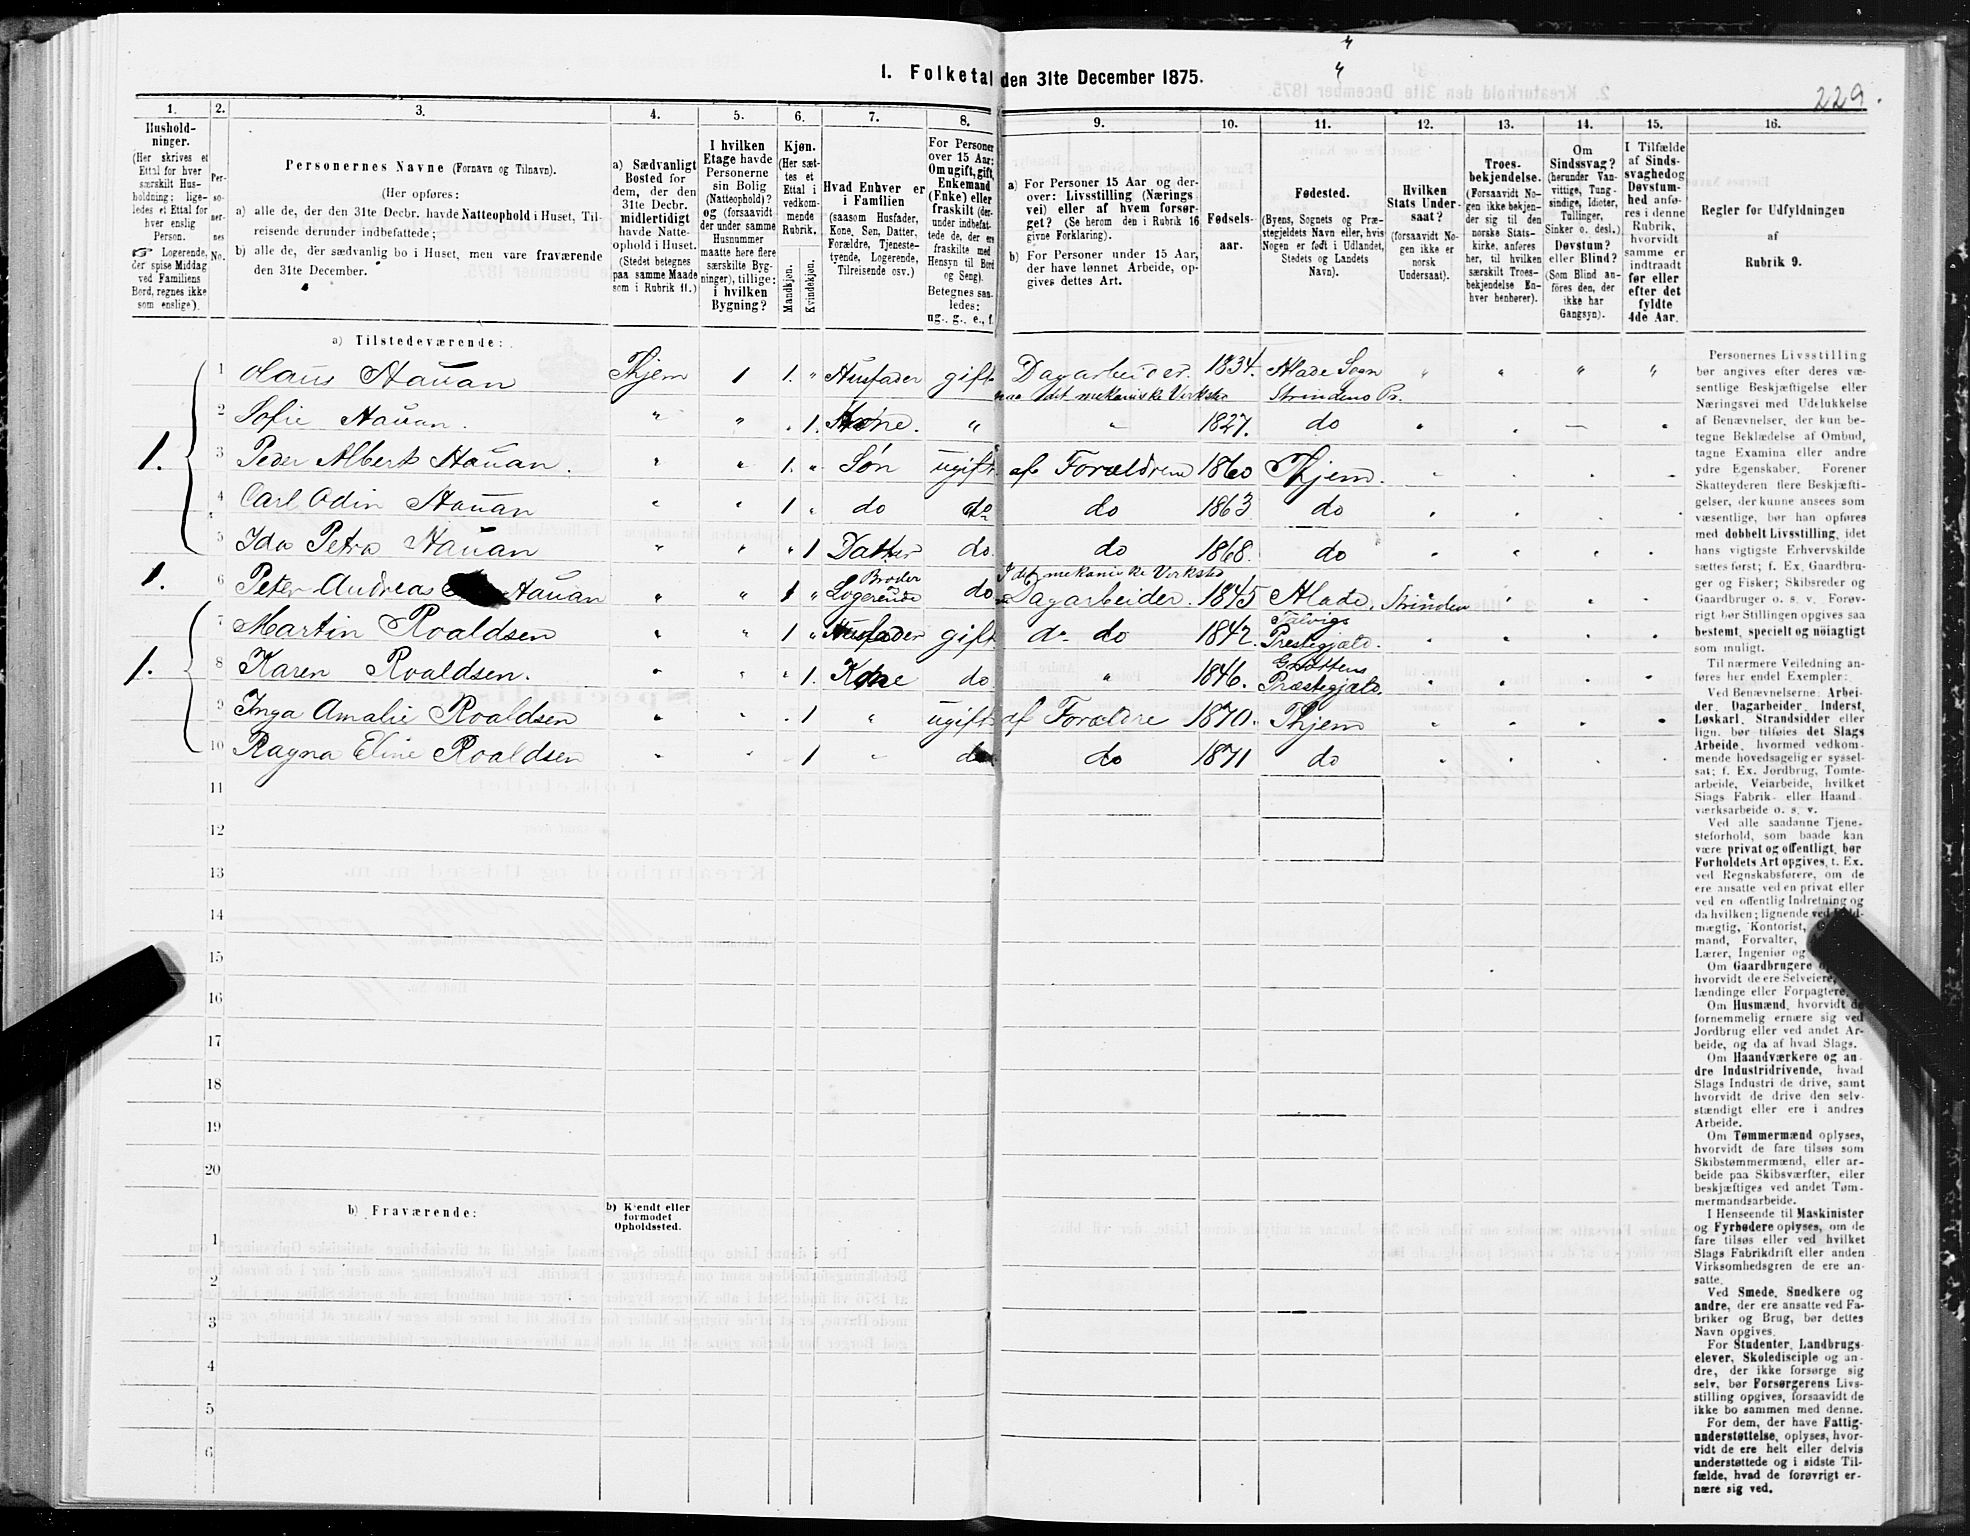 1. Folketal den 31te December 1875.
229.
1. 2. 3. 4. 5. 6. 7. 8. 9. 10. 11. 12. 13. 14. 15. 16.
Hushold-
ninger.
(Her skrives et
Ettal for hver
særskilt Hus-
holdning; lige-
ledes et Ettal for
hver enslig
Person.
☞ Logerende,
der spise Middag
ved Familiens
Bord, regnes ikke
som enslige).
Per-
so-
ner-
nes
No.
Personernes Navne (Fornavn og Tilnavn).
(Her opføres:
a) alle de, der den 31te Decbr. havde Natteophold i Huset, Til-
reisende derunder indbefattede;
b) alle de, der sædvanlig bo i Huset, men vare fraværende
den 31te December.
a) Sædvanligt
Bosted for
dem, der den
31te Decbr.
midlertidigt
havde Natte-
ophold i Huset.
(Stedet betegnes
paa samme Maade
som i Rubrik 11.)
I hvilken
Etage havde
Personerne
sin Bolig
(Natteophold)?
og (forsaavidt
der under samme
Husnummer
maatte høre flere
særskilte Byg-
ninger), tillige:
i hvilken
Bygning?
Kjøn.
(Her sæt-
tes et
Ettal i
vedkom-
mende
Rubrik.
Mandkjøn.
Kvindekjøn.
Hvad Enhver er
i Familien
(saasom Husfader,
Kone, Søn, Datter,
Forældre, Tjeneste-
tyende, Logerende,
Tilreisende osv.)
For Personer
over 15 Aar:
Om ugift, gift,
Enkemand
(Enke) eller
fraskilt (der-
under indbefat-
tede de, der ere
fraskilte med
Hensyn til Bord
og Seng).
Betegnes saa-
ledes:
ug., g., e., f.
a) For Personer 15 Aar og der-
over: Livsstilling (Nærings
vei) eller af hvem forsør-
get? (Se herom den i Rubrik 16
givne Forklaring).
b) For Personer under 15 Aar,
der have lønnet Arbeide, op-
gives dettes Art.
Fødsels-
aar.
Fødested.
(Byens, Sognets og Præ-
stegjeldets Navn eller, hvis
Nogen er født i Udlandet,
Stedets og Landets
Navn).
Hvilken
Stats Under-
saat?
(forsaavidt No-
gen ikke er
norsk
Undersaat).
Troes-
bekjendelse.
(Forsaavidt No-
gen ikke bekjen-
der sig til den
norske Stats-
kirke, anføres
her, til hvilken
særskilt Troes-
bekjendelse En-
hver henhører).
Om
Sindssvag?
(herunder Van-
vittige, Tung-
sindige, Idioter,
Tullinger,
Sinker o. desl.)
Døvstum?
eller Blind?
(Som Blind an-
føres den, der
ikke har
Gangsyn).
I Tilfælde
af Sinds-
svaghed og
Døvstum-
hed anfø-
res i denne
Rubrik,
hvorvidt
samme er
indtraadt
før eller
efter det
fyldte
4de Aar.
Regler for Udfyldningen
af
Rubrik 9.
a) Tilstedeværende:
1 Claus Hauan Thjem 1 1. " Husfader gift Dagarbeider. 1834. Hlade Sogn " " " "
paa det mekaniske Virksted Strindens Pr.
2 Sofie Hauan. " " " 1. Kone. " " 1827. do
1. 3 Peder Albert Hauan. " " 1. " Søn ugift af Forældrene 1860 Thjem.
4 Carl Odin Hauan " " 1 " do do do 1863 do
5 Ida Petra Hauan " " " 1 Datter do. do 1868. do
I det mekaniske Virksted
Broder
1. 6 Peter Andreas Hauan " " 1 " Logerende do Dagarbeider. 1845 Hlade, Strinden
7 Martin Roaldsen " " 1 " Husfader gift do do 1842. Talvigs
Prestegjæld.
1. 8 Karen Roaldsen. " " " 1. Kone do. " 1846.
Præstegjæld.
9 Inga Amalie Roaldsen " " " 1 " ugift af Forældre 1870. Thjem
10 Ragna Eline Roaldsen " " " 1 " do do 1871 do
11
12
13
14
15
16
17
18
19
20
b) Fraværende:
b) Kjendt eller
formodet
Opholdssted.
1
2
3
4
5
6
Personernes Livsstilling
bør angives efter deres væ-
sentlige Beskjæftigelse eller
Næringsvei med Udelukkelse
af Benævnelser, der kun be-
tegne Beklædelse af Ombud,
tagne Examina eller andre
ydre Egenskaber. Forener
Skatteyderen flere Beskjæfti-
gelser, der kunne ansees som
væsentlige, bør han opføres
med dobbelt Livsstilling, idet
hans vigtigste Erhvervskilde
sættes først; f. Ex. Gaardbru-
ger og Fisker; Skibsreder og
Gaardbruger o. s. v. Forøv-
rigt bør Stillingen opgives saa
bestemt, specielt og nöiagtigt
som muligt.
Til nærmere Veiledning an-
føres her endel Exempler:
Ved Benævnelserne: Arbei-
der, Dagarbeider, Inderst,
Løskarl, Strandsidder eller
lign. bør tilføies det Slags
Arbeide, hvormed vedkom-
mende hovedsagelig er syssel-
sat; f. Ex. Jordbrug, Tomte-
arbeide, Veiarbeide, hvilket
Slags Fabrik- eller Haand
værksarbeide o. s. v.
Ved alle saadanne Tjene-
steforhold, som baade kan
være privat og offentligt, bør
Forholdets Art opgives, f. Ex.
ved Regnskabsførere, om de
ere ansatte ved en privat eller
ved en offentlig Indretning og
da hvilken; lignende ved
mægtig, Kontorist,
mand, Forvalter,
Lærer, Ingeniør og
Om Gaardbrugere
hvorvidt de ere Selveiere,
lændinge eller Forpagtere,
Om Husmænd, hvorvidt de
fornemmelig ernære sig ved
Jordbrug eller ved andet Ar-
beide, og da af hvad Slags.
Om Haandværkere og an-
dre Industridrivende, hvad
Slags Industri de drive, samt
hvorvidt de drive den selv-
stændigt eller ere i andres
Arbeide.
Om Tømmermænd oplyses,
hvorvidt de fare tilsøs som
Skibstømmermænd, eller ar-
beide paa Skibsværfter, eller
beskjæftiges ved andet Tøm-
mermandsarbeide.
I Henseende til Maskinister
og Fyrbødere oplyses, om de
fare tilsøs eller ved hvilket
Slags Fabrikdrift eller anden
Virksomhedsgren de ere an-
satte.
Ved Smede, Snedkere og
andre, der ere ansatte ved Fa-
briker og Brug, bør dettes
Navn opgives.
For Studenter, Landbrugs-
elever, Skoledisciple og an-
dre, der ikke forsørge sig
selv, bør Forsørgerens Livs-
stilling opgives, forsaavidt de
ikke bo sammen med denne.
For dem, der have Fattig-
understøttelse, oplyses, hvor-
vidt de ere helt eller delvis
understøttede og i sidste Til-
fælde, hvad de forøvrigt er-
nære sig ved.